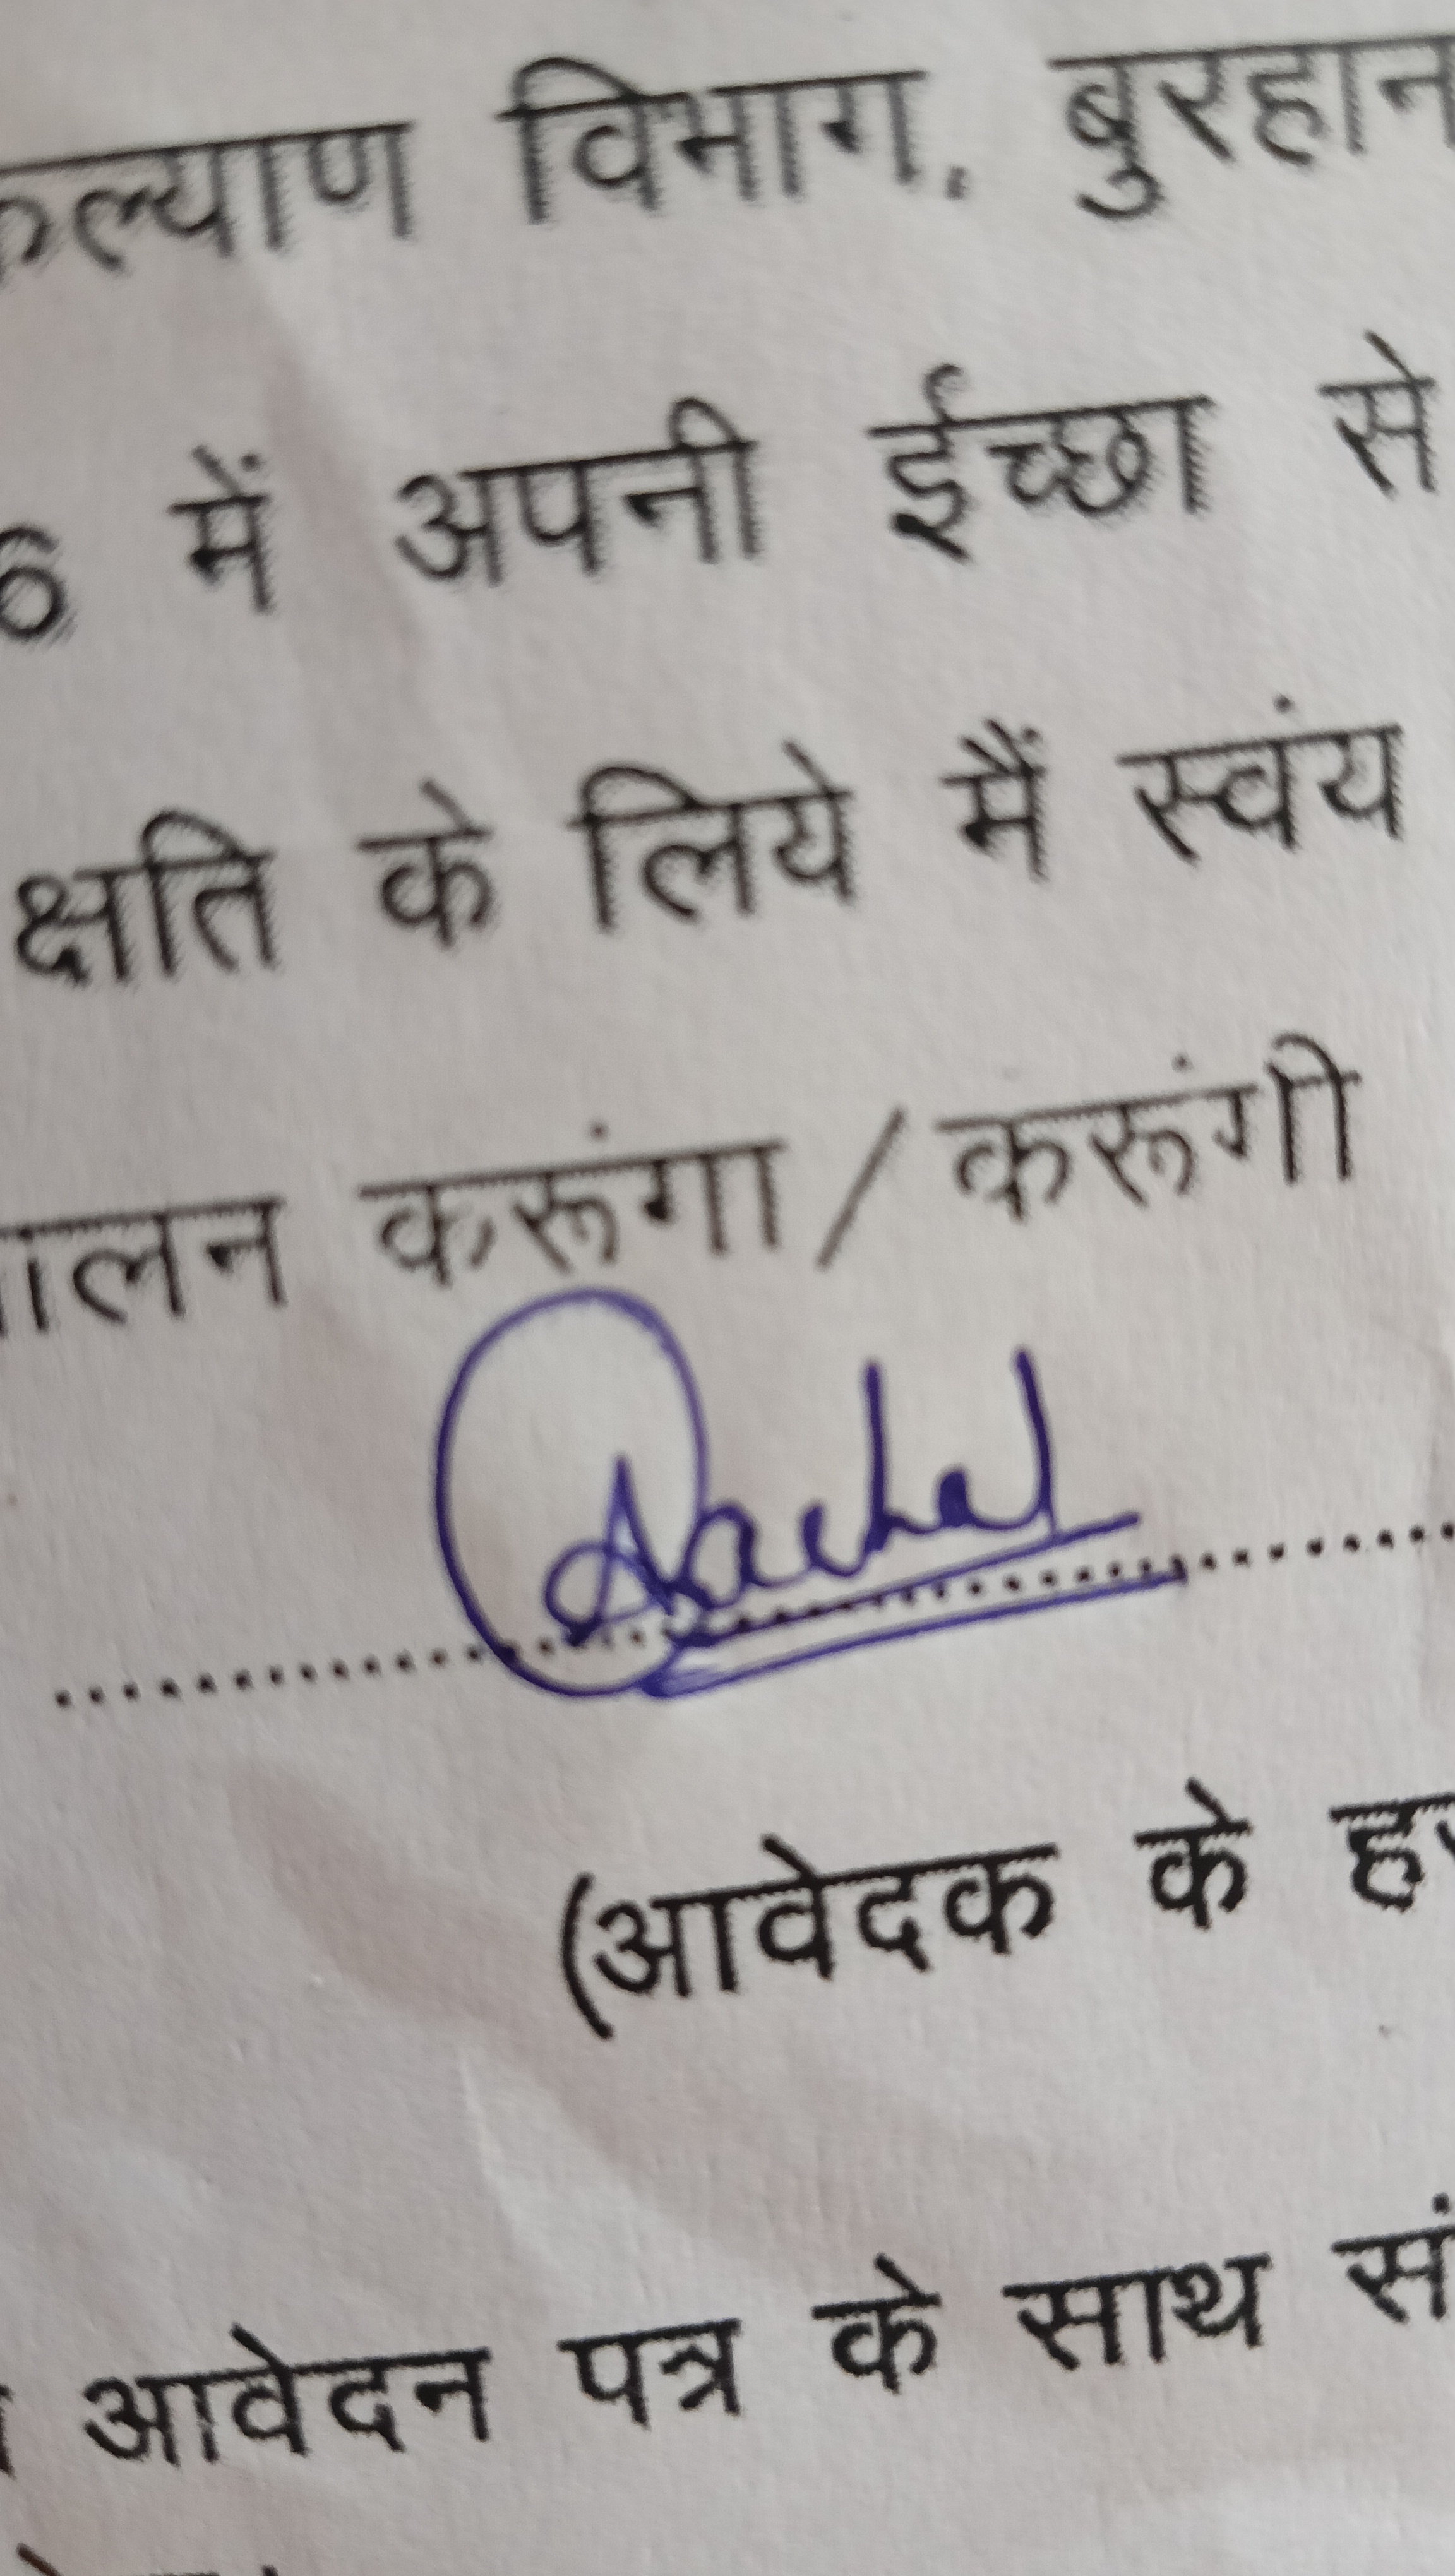 कल्याण विभाग, बुरहान
6 में अपनी ईच्छा से
क्षति के लिये मैं स्वंय
ालन करूंगा / करूंगी
(आवेदक के ह
आवेदन पत्र के साथ सं